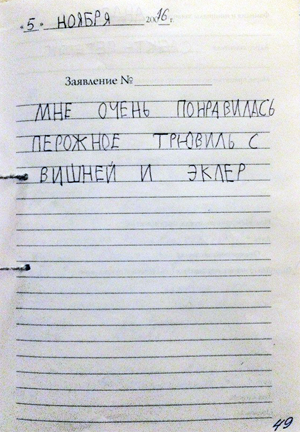 «5» НОЯБРЯ 2016 г.
Заявление №
МНЕ ОЧЕНЬ ПОНРАВИЛАСЬ
ПЕРОЖНОЕ ТРЮВИЛЬ С
ВИШНЕЙ И ЭКЛЕР
49